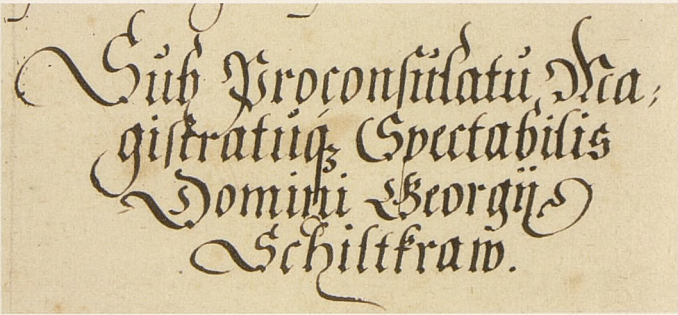 Sub Proconsulatu Ma-
gistratuq; Spectabilis
Domini Georgij
Schiltkraw.